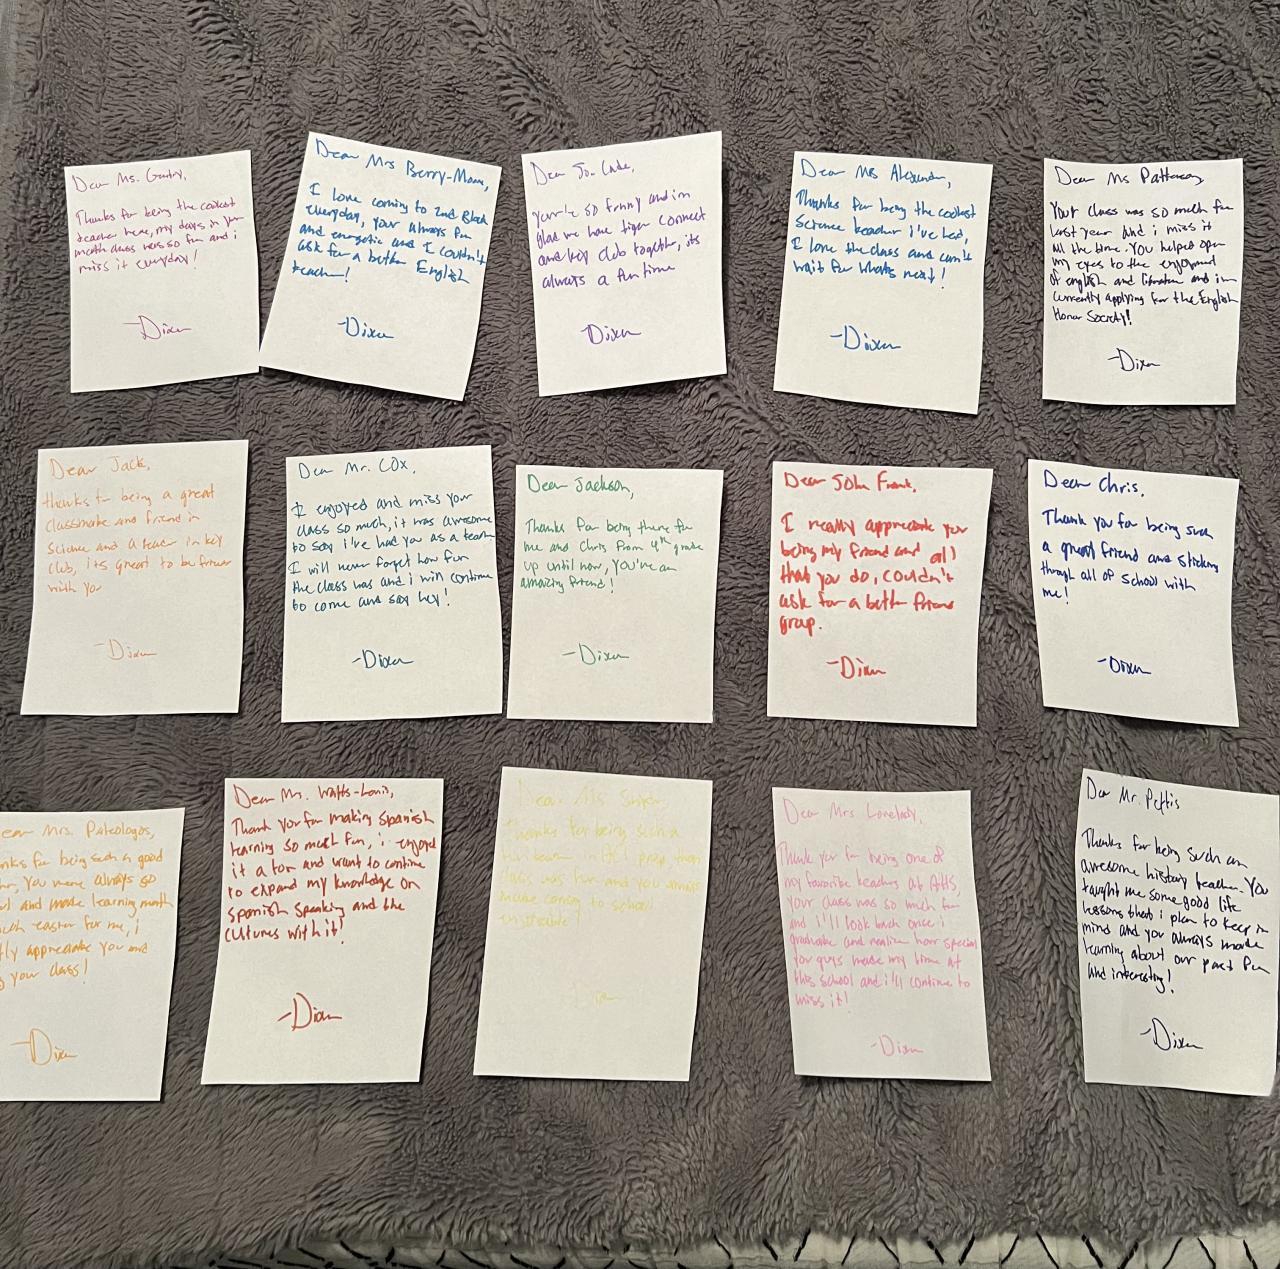 Dear Ms. Gentry,
Thanks for being the coolest
teacher here, my days in your
math class was so fun and i
miss it everyday!
-Dixon
Dear Mrs Berry-Mann,
I love coming to 2nd Block
everyday, your always fun
and energetic and I couldn't
ask for a better English
teacher!
-Dixon
Dear Jo. Luke,
you're so funny and im
glad we have tiger connect
and key club together, its
always a fun time
-Dixon
Dear Ms Alexander,
Thanks for being the coolest
science teacher i've had,
I love the class and can't
wait for whats next!
-Dixon
Dear Ms
Your class was so much fun
last year and i miss it
all the time. You helped open
my eyes to the enjoyment
of english and literature and im
currently applying for the English
Honor Society!
-Dixon
Dear Jack,
thanks for being a great
classmate and friend in
science and a teacher in key
club, its great to be friends
with you
-Dixon
Dear Mr. Cox,
I enjoyed and miss your
class so much, it was awesome
to say i've had you as a teacher
I will never forget how fun
the class was and i will continue
to come and say hey!
-Dixon
Dear Jackson,
Thanks for being there for
me and Chris from 4th grade
up until now, you've an
amazing friend!
-Dixon
Dear John Frank,
I really appreciate you
being my friend and all
that you do, couldn't
ask for a better friend
group.
-Dixon
Dear Chris,
Thank you for being such
a great friend and sticking
through all of school with
me!
-Dixon
ear Mrs. Paleologos,
nks for being such a good
er, you were always so
l and made learning math
uch easier for me, i
tly appreciate you and
g your class!
-Dixon
Dear Mrs. Watts-Lewis,
Thank you for making Spanish
learning so much fun, i enjoyed
it a ton and want to continue
to expand my knowledge on
Spanish speaking and the
cultures with it!
-Dixon
Dear Ms
Thanks for being such a
fun teacher in ACT prep, that
class was fun and you always
made coming to school
enjoyable!
-Dixon
Dear Mrs Lovelady,
Thank you for being one of
my favorite teachers at AHS
your class was so much fun
and i'll look back once i
graduate and realize how special
you guys made my time at
this school and i'll continue to
miss it!
-Dixon
Dear Mr. Pettis
Thanks for being such an
awesome history teacher. You
taught me some good life
lessons that i plan to keep in
mind and you always made
learning about our past fun
and interesting!
-Dixon